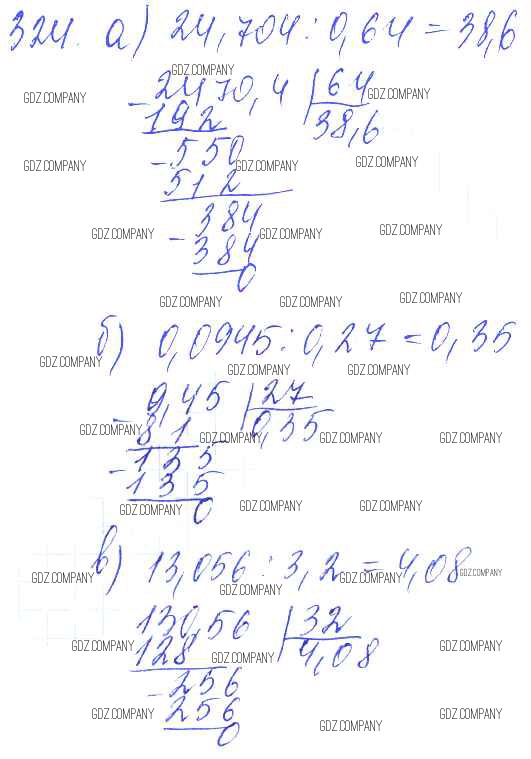 324. а) 24,704 : 0,64 = 38,6
GDZ.COMPANY
GDZ.COMPANY – 2470,4 | 64 GDZ.COMPANY
192 38,6
GDZ.COMPANY – 550 GDZ.COMPANY GDZ.COMPANY
512
GDZ.COMPANY 384 GDZ.COMPANY GDZ.COMPANY
– 384
0
GDZ.COMPANY GDZ.COMPANY GDZ.COMPANY
б) 0,0945 : 0,27 = 0,35
GDZ.COMPANY GDZ.COMPANY GDZ.COMPANY
– 9,45 | 27
GDZ.COMPANY 81 GDZ.COMPANY 0,35 GDZ.COMPANY GDZ.COMPANY
– 135
135
GDZ.COMPANY 0 GDZ.COMPANY GDZ.COMPANY
в) 13,056 : 3,2 = 4,08
GDZ.COMPANY GDZ.COMPANY GDZ.COMPANY
GDZ.COMPANY
130,56 | 32
GDZ.COMPANY 128 GDZ.COMPANY 4,08 GDZ.COMPANY
– 256
GDZ.COMPANY 256 GDZ.COMPANY GDZ.COMPANY
0